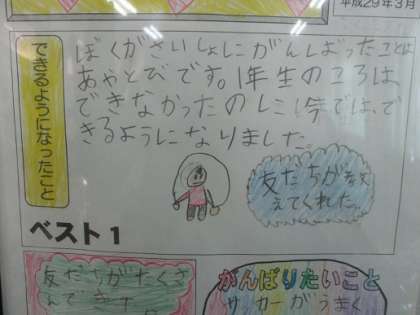 平成29年3月
できるようになったこと
ぼくがさいしょにがんばったことは
あやとびです。1年生のころは、
できなかったのに今では、で
きるようになりました。
友だちが教
えてくれた。
ベスト1
友だちがたくさ
んできた。
がんばりたいこと
サッカーがうまく